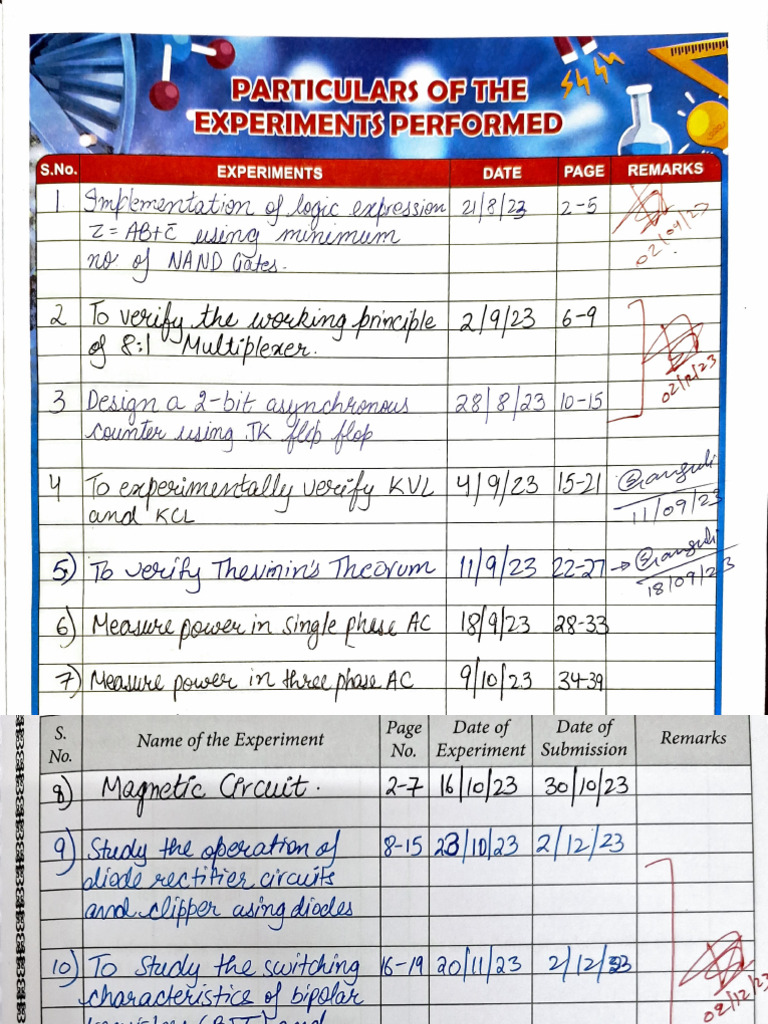 PARTICULARS OF THE
EXPERIMENTS PERFORMED
S.No. EXPERIMENTS DATE PAGE REMARKS
1 Implementation of logic expression 21/8/23 2-5
Z = AB+C̅ using minimum
no of NAND Gates. 02/09/23
2 To verify the working principle 2/9/23 6-9
of 8:1 Multiplexer.
02/12/23
3 Design a 2-bit asynchronous 28/8/23 10-15
counter using JK flip flop
4 To experimentally verify KVL 4/9/23 15-21
and KCL 11/09/23
5) To verify Thevmin's Theorum 11/9/23 22-27 →
18/09/23
6) Measure power in single phase AC 18/9/23 28-33
7) Measure power in three phase AC 9/10/23 34-39
S. No. Name of the Experiment Page No. Date of Experiment Date of Submission Remarks
8) Magnetic Circuit. 2-7 16/10/23 30/10/23
9) Study the operation of 8-15 23/10/23 2/12/23
diode rectifier circuits
and clipper using diodes
10) To study the switching 16-19 20/11/23 2/12/23
characteristics of bipolar 02/12/23